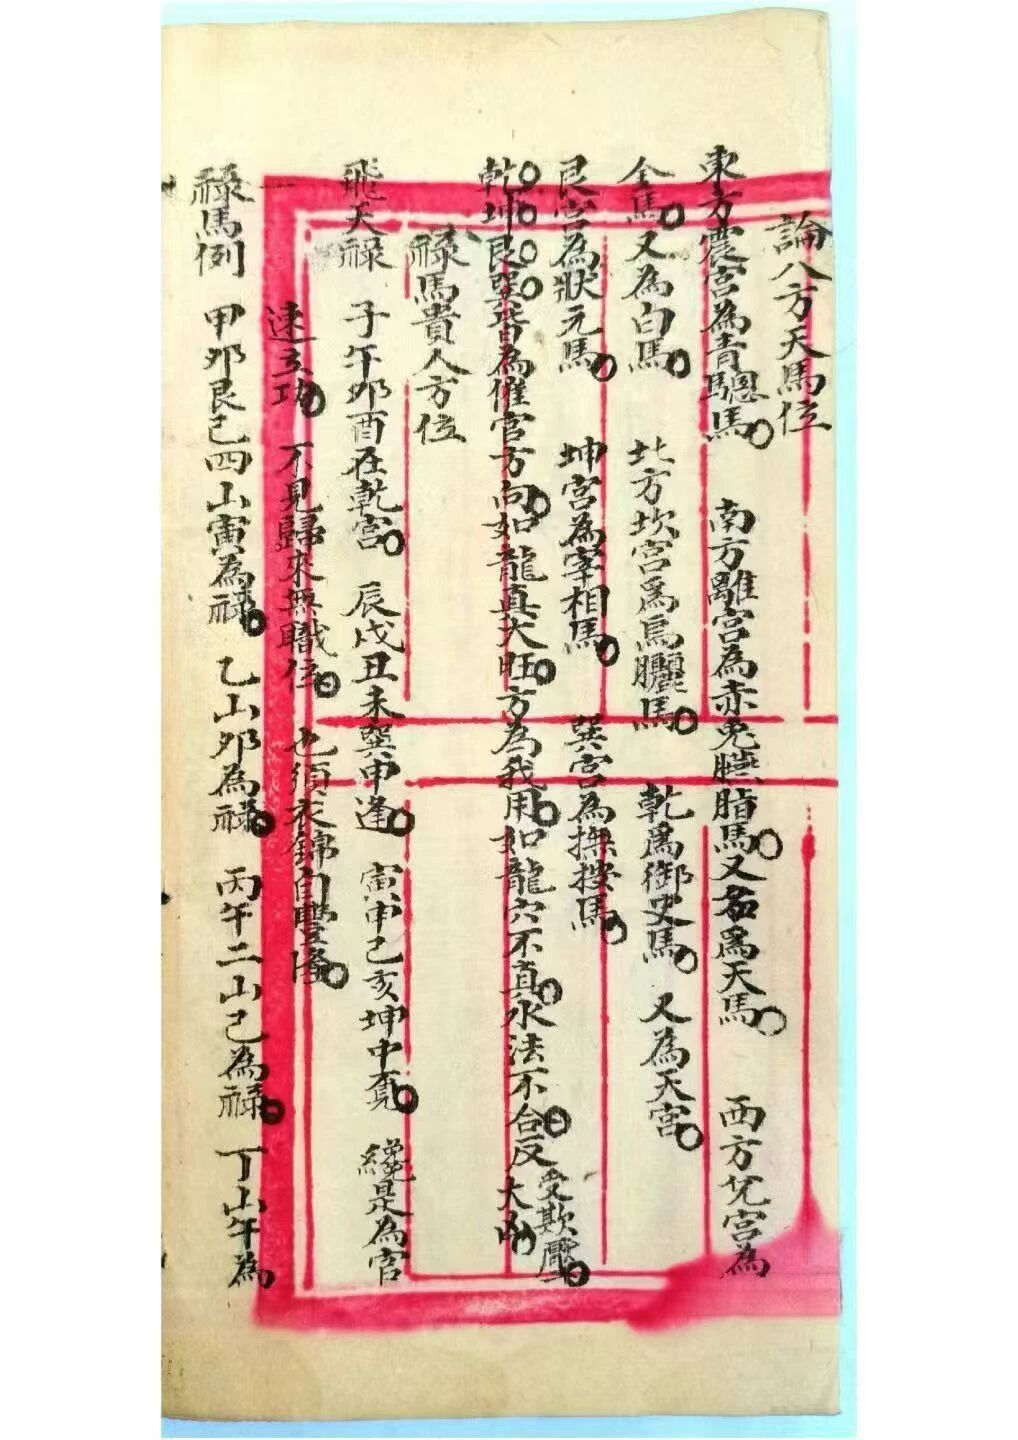 論八方天馬位
東方震宮為青驄馬。 南方離宮為赤兔臙脂馬。又名爲天馬。 西方兌宮為
金馬。又為白馬。 北方坎宮爲烏驪馬。 乾爲御史馬。 又為天宮。
艮宮為狀元馬。 坤宮為宰相馬。 巽宮為撫按馬。
乾。坤。艮。巽。皆為催官方向。如龍真大旺。方為我用。如龍穴不真。水法不合。反大凶。受欺壓。
祿馬貴人方位
飛天祿 子午卯酉在乾宮。 辰戌丑未巽中逢。 寅申巳亥坤中覓。 纔是為官
速立功。 不見歸來無職位。 也須衣錦自豐隆。
祿馬例 甲卯艮巳四山寅為祿。 乙山卯為祿。 丙午二山巳為祿。 丁山午為